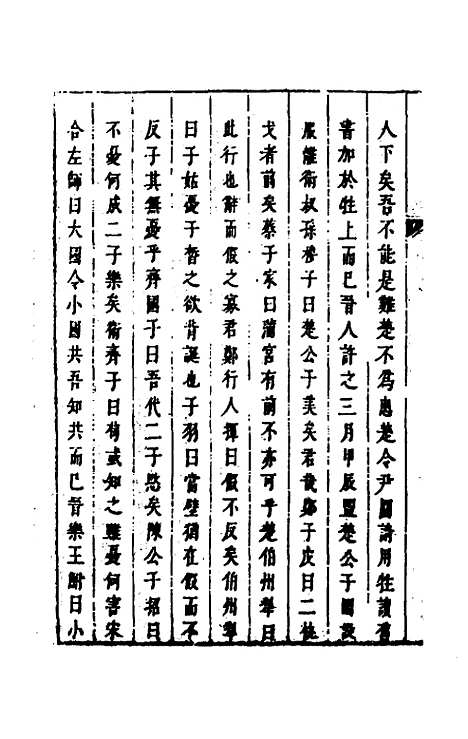 人下矣吾不能是難楚不為患楚令尹圍請用牲讀舊
書加於牲上而已晉人許之三月甲辰盟楚公子圍設
服離衛叔孫穆子曰楚公子美矣君哉鄭子皮曰二執
戈者前矣蔡子家曰蒲宮有前不亦可乎楚伯州犂曰
此行也辭而假之寡君鄭行人揮曰假不反矣伯州犂
曰子姑憂子晳之欲背誕也子羽曰當璧猶在假而不
反子其無憂乎齊國子曰吾代二子愍矣陳公子招曰
不憂何成二子樂矣衛齊子曰苟或知之雖憂何害宋
合左師曰大國令小國共吾知共而已晉樂王鮒曰小